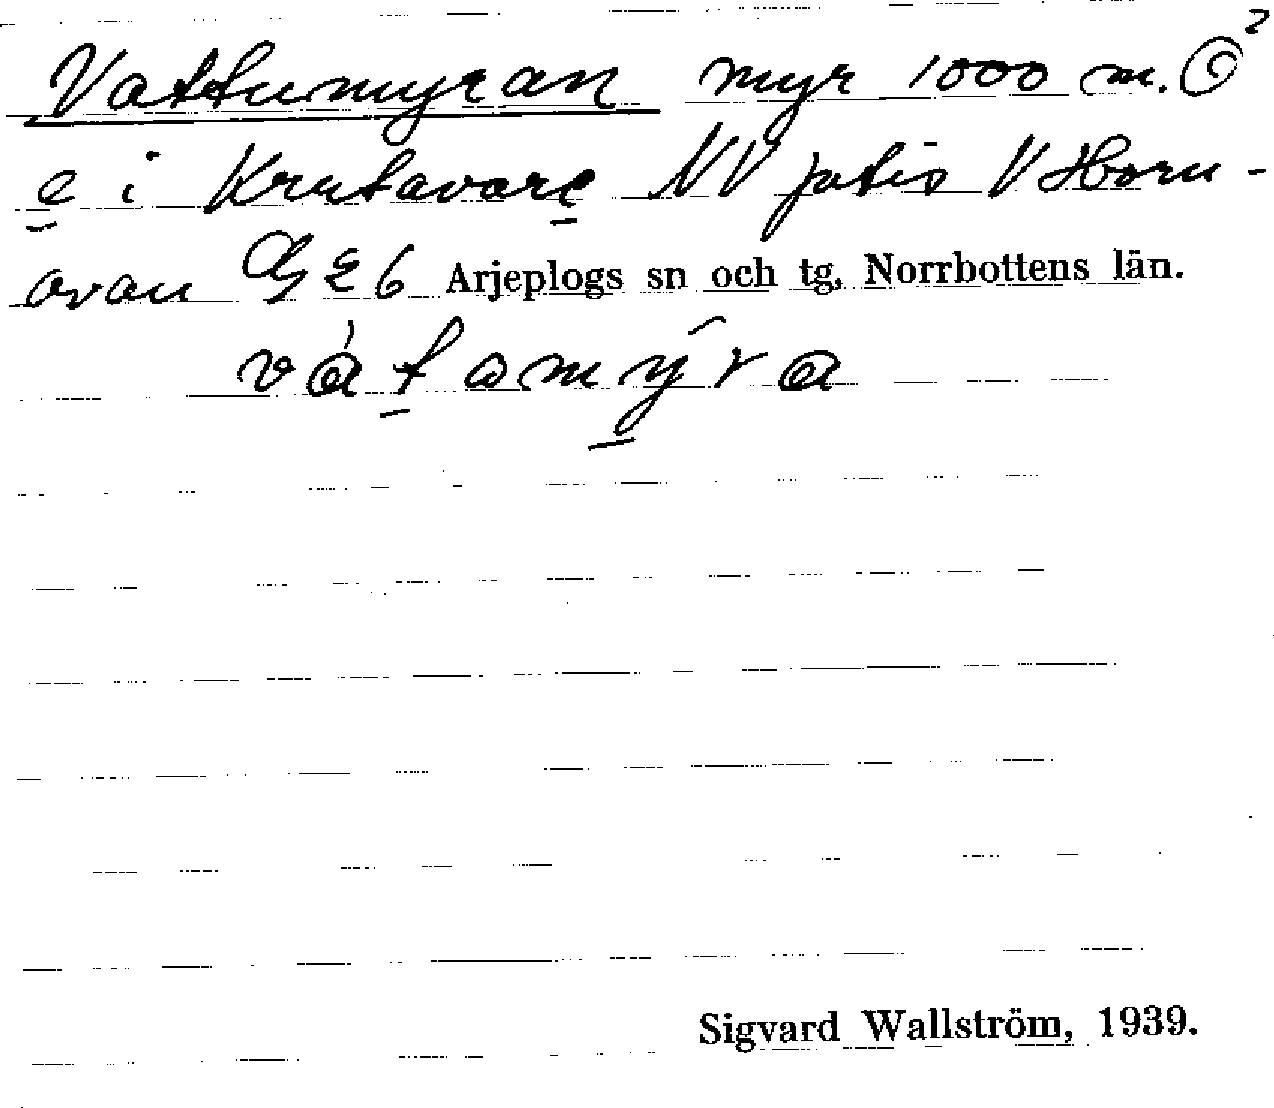 Vattumyran myr 1000 m. Ö
e i Krutavare NV jutis V Horn-
avan G E 6 Arjeplogs sn och tg, Norrbottens län.
vátamýra
Sigvard Wallström, 1939.